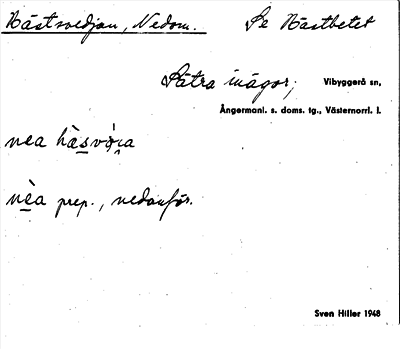 Hästsvedjan, Nedom. Se Hästbetet
Sätra inägor; Vibyggerå sn,
Ångermanl. s. doms. tg., Västernorrl. l.
nea hàsvò̜ia
nèa prep., nedanför.
Sven Hiller 1948